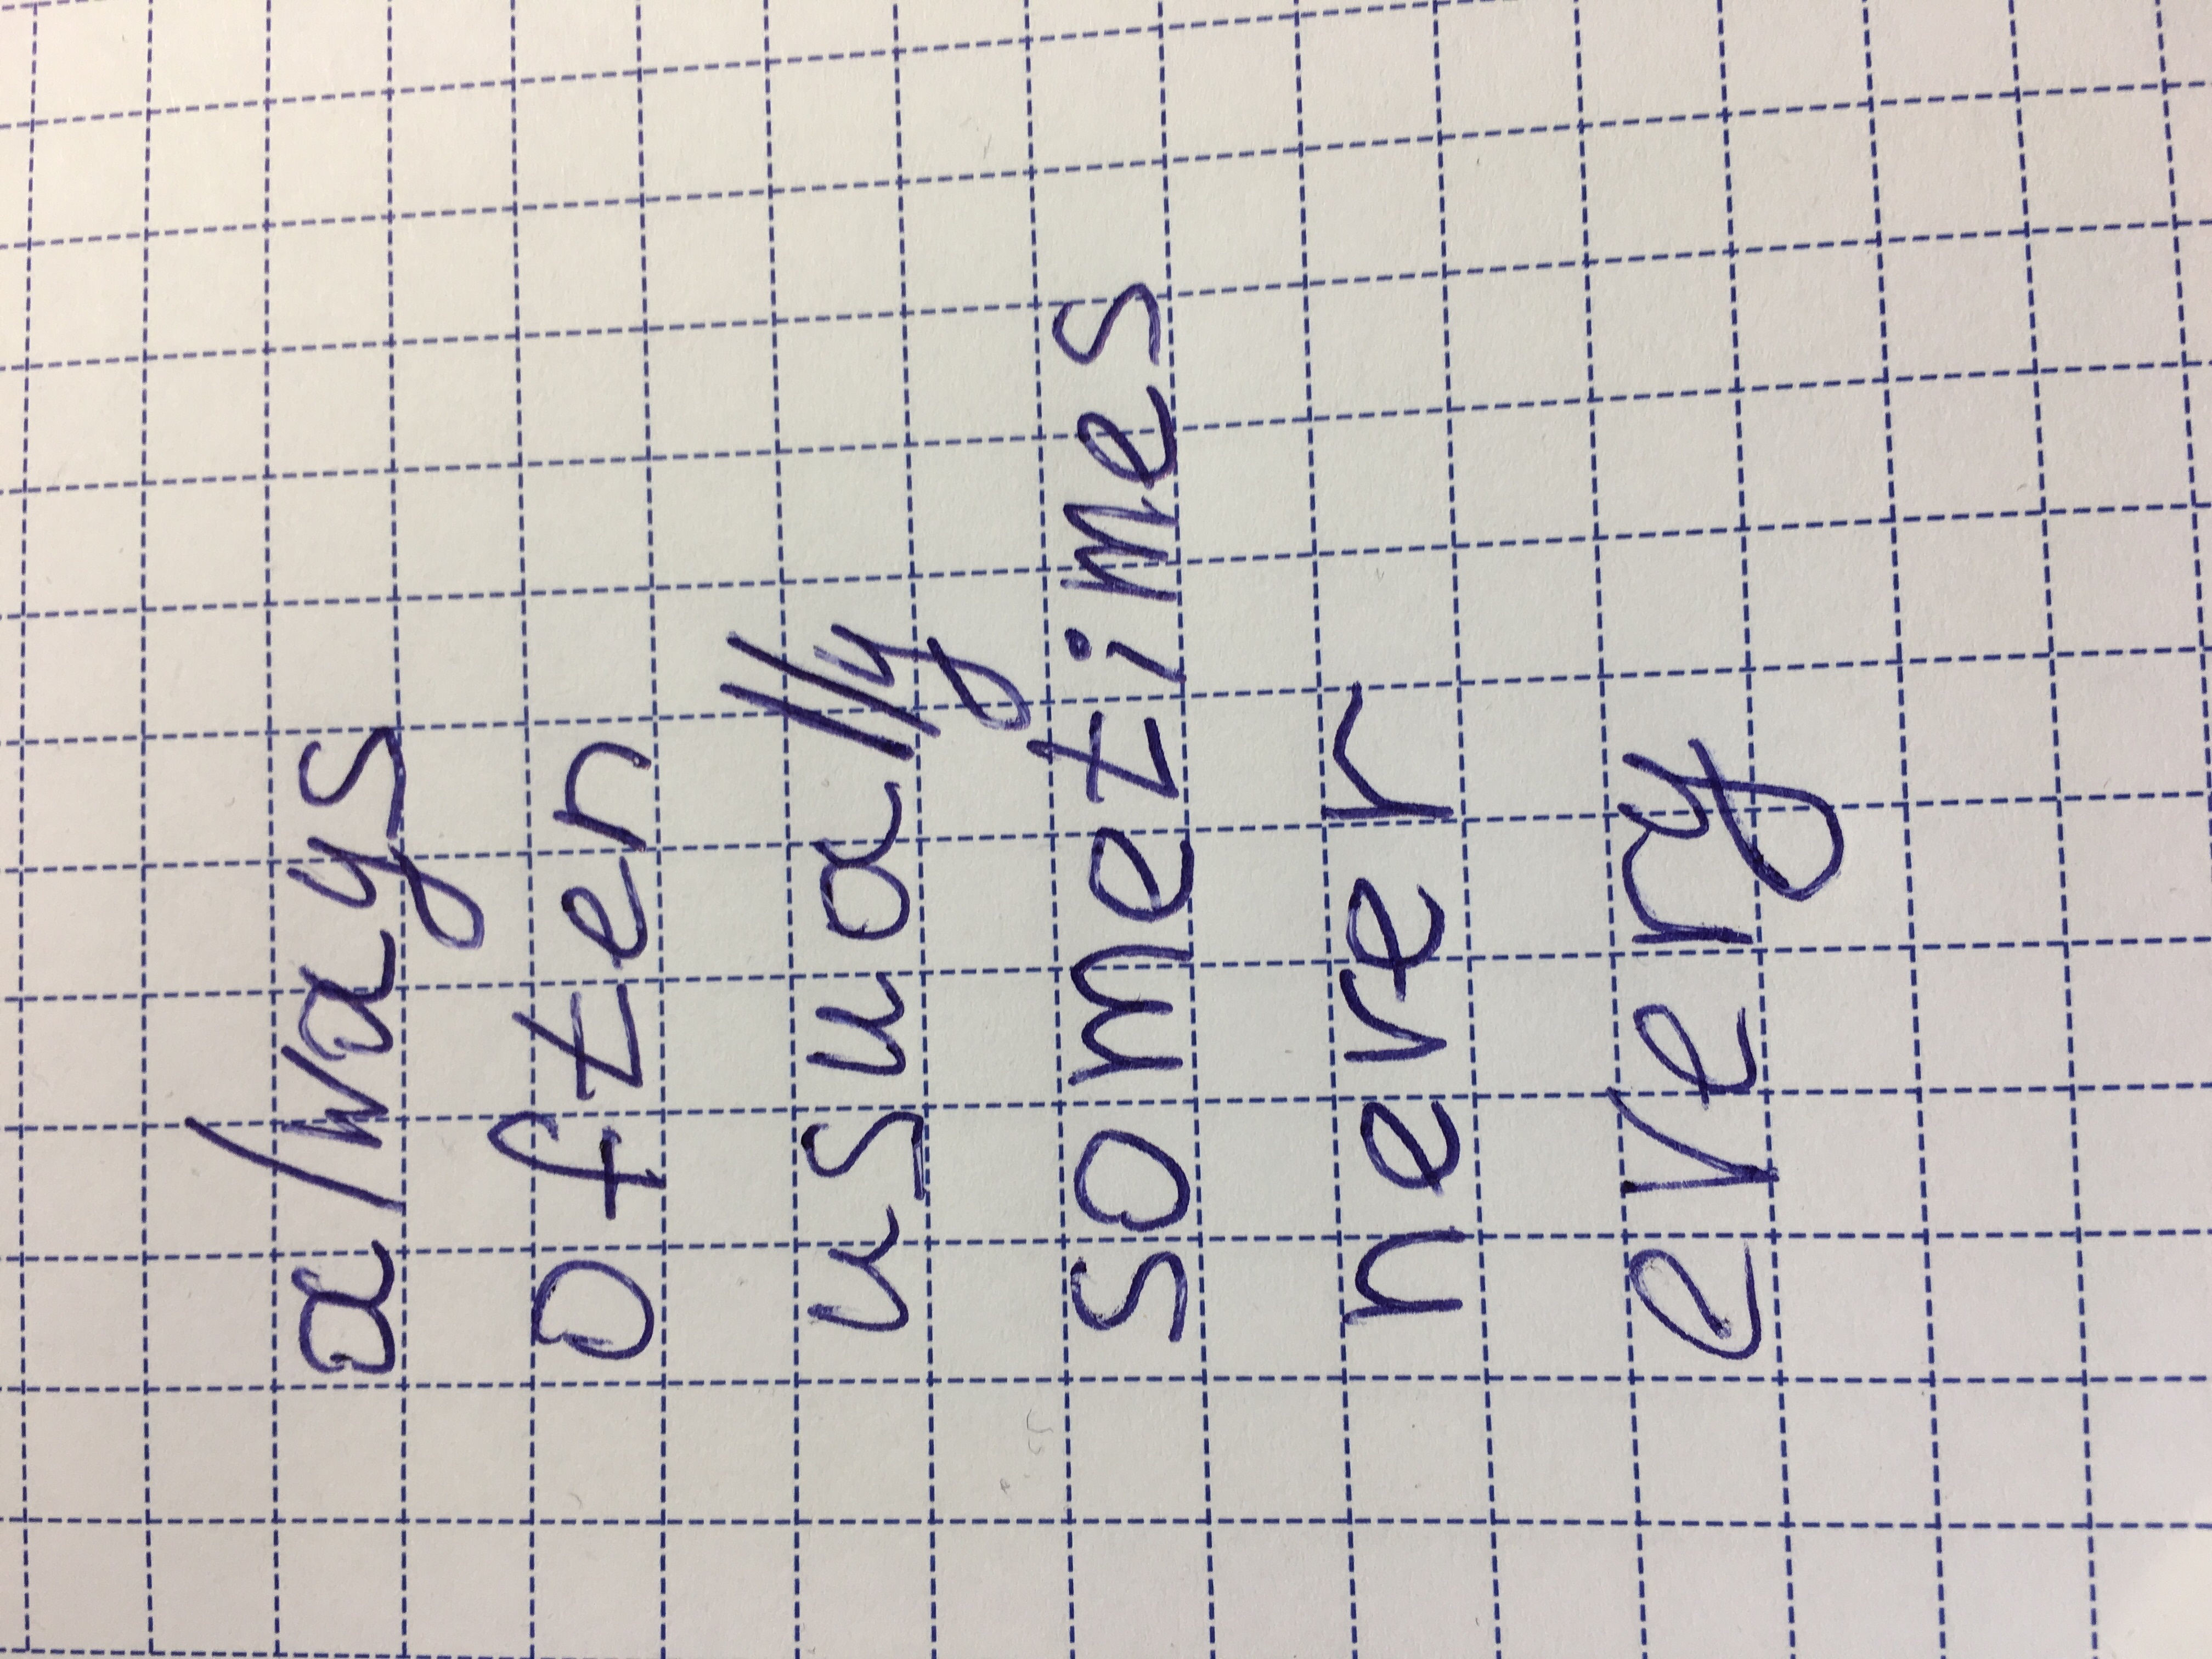 always
often
usually
sometimes
never
every